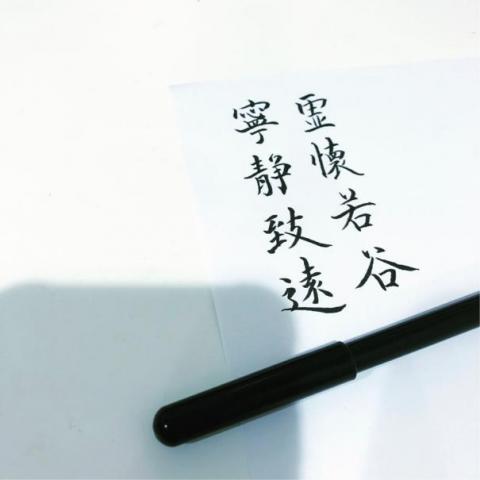 虚懷若谷
寧静致遠